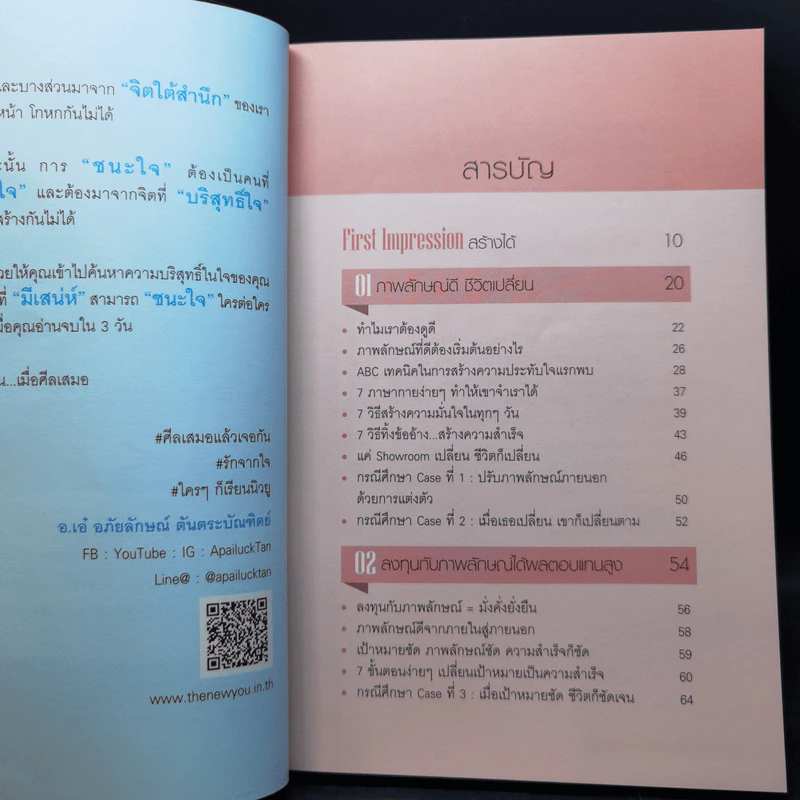 และบางส่วนมาจาก “จิตใต้สำนึก” ของเรา
หน้า โกหกกันไม่ได้
นั้น การ “ชนะใจ” ต้องเป็นคนที่
ใจ” และต้องมาจากจิตที่ “บริสุทธิ์ใจ”
สร้างกันไม่ได้
วยให้คุณเข้าไปค้นหาความบริสุทธิ์ในใจของคุณ
ที่ “มีเสน่ห์” สามารถ “ชนะใจ” ใครต่อใคร
มื่อคุณอ่านจบใน 3 วัน
น...เมื่อศีลเสมอ
#ศีลเสมอแล้วเจอกัน
#รักจากใจ
#ใครๆ ก็เรียนนิวยู
อ.เอ๋ อภัยลักษณ์ ตันตระบัณฑิตย์
FB : YouTube : IG : ApailuckTan
Line@ : @apailucktan
www.thenewyou.in.th
สารบัญ
First Impression สร้างได้ 10
01 ภาพลักษณ์ดี ชีวิตเปลี่ยน 20
• ทำไมเราต้องดูดี 22
• ภาพลักษณ์ที่ดีต้องเริ่มต้นอย่างไร 26
• ABC เทคนิคในการสร้างความประทับใจแรกพบ 28
• 7 ภาษากายง่ายๆ ทำให้เขาจำเราได้ 37
• 7 วิธีสร้างความมั่นใจในทุกๆ วัน 39
• 7 วิธีทิ้งข้ออ้าง...สร้างความสำเร็จ 43
• แค่ Showroom เปลี่ยน ชีวิตก็เปลี่ยน 46
• กรณีศึกษา Case ที่ 1 : ปรับภาพลักษณ์ภายนอก
ด้วยการแต่งตัว 50
• กรณีศึกษา Case ที่ 2 : เมื่อเธอเปลี่ยน เขาก็เปลี่ยนตาม 52
02 ลงทุนกับภาพลักษณ์ได้ผลตอบแทนสูง 54
• ลงทุนกับภาพลักษณ์ = มั่งคั่งยั่งยืน 56
• ภาพลักษณ์ดีจากภายในสู่ภายนอก 58
• เป้าหมายชัด ภาพลักษณ์ชัด ความสำเร็จก็ชัด 59
• 7 ขั้นตอนง่ายๆ เปลี่ยนเป้าหมายเป็นความสำเร็จ 60
• กรณีศึกษา Case ที่ 3 : เมื่อเป้าหมายชัด ชีวิตก็ชัดเจน 64